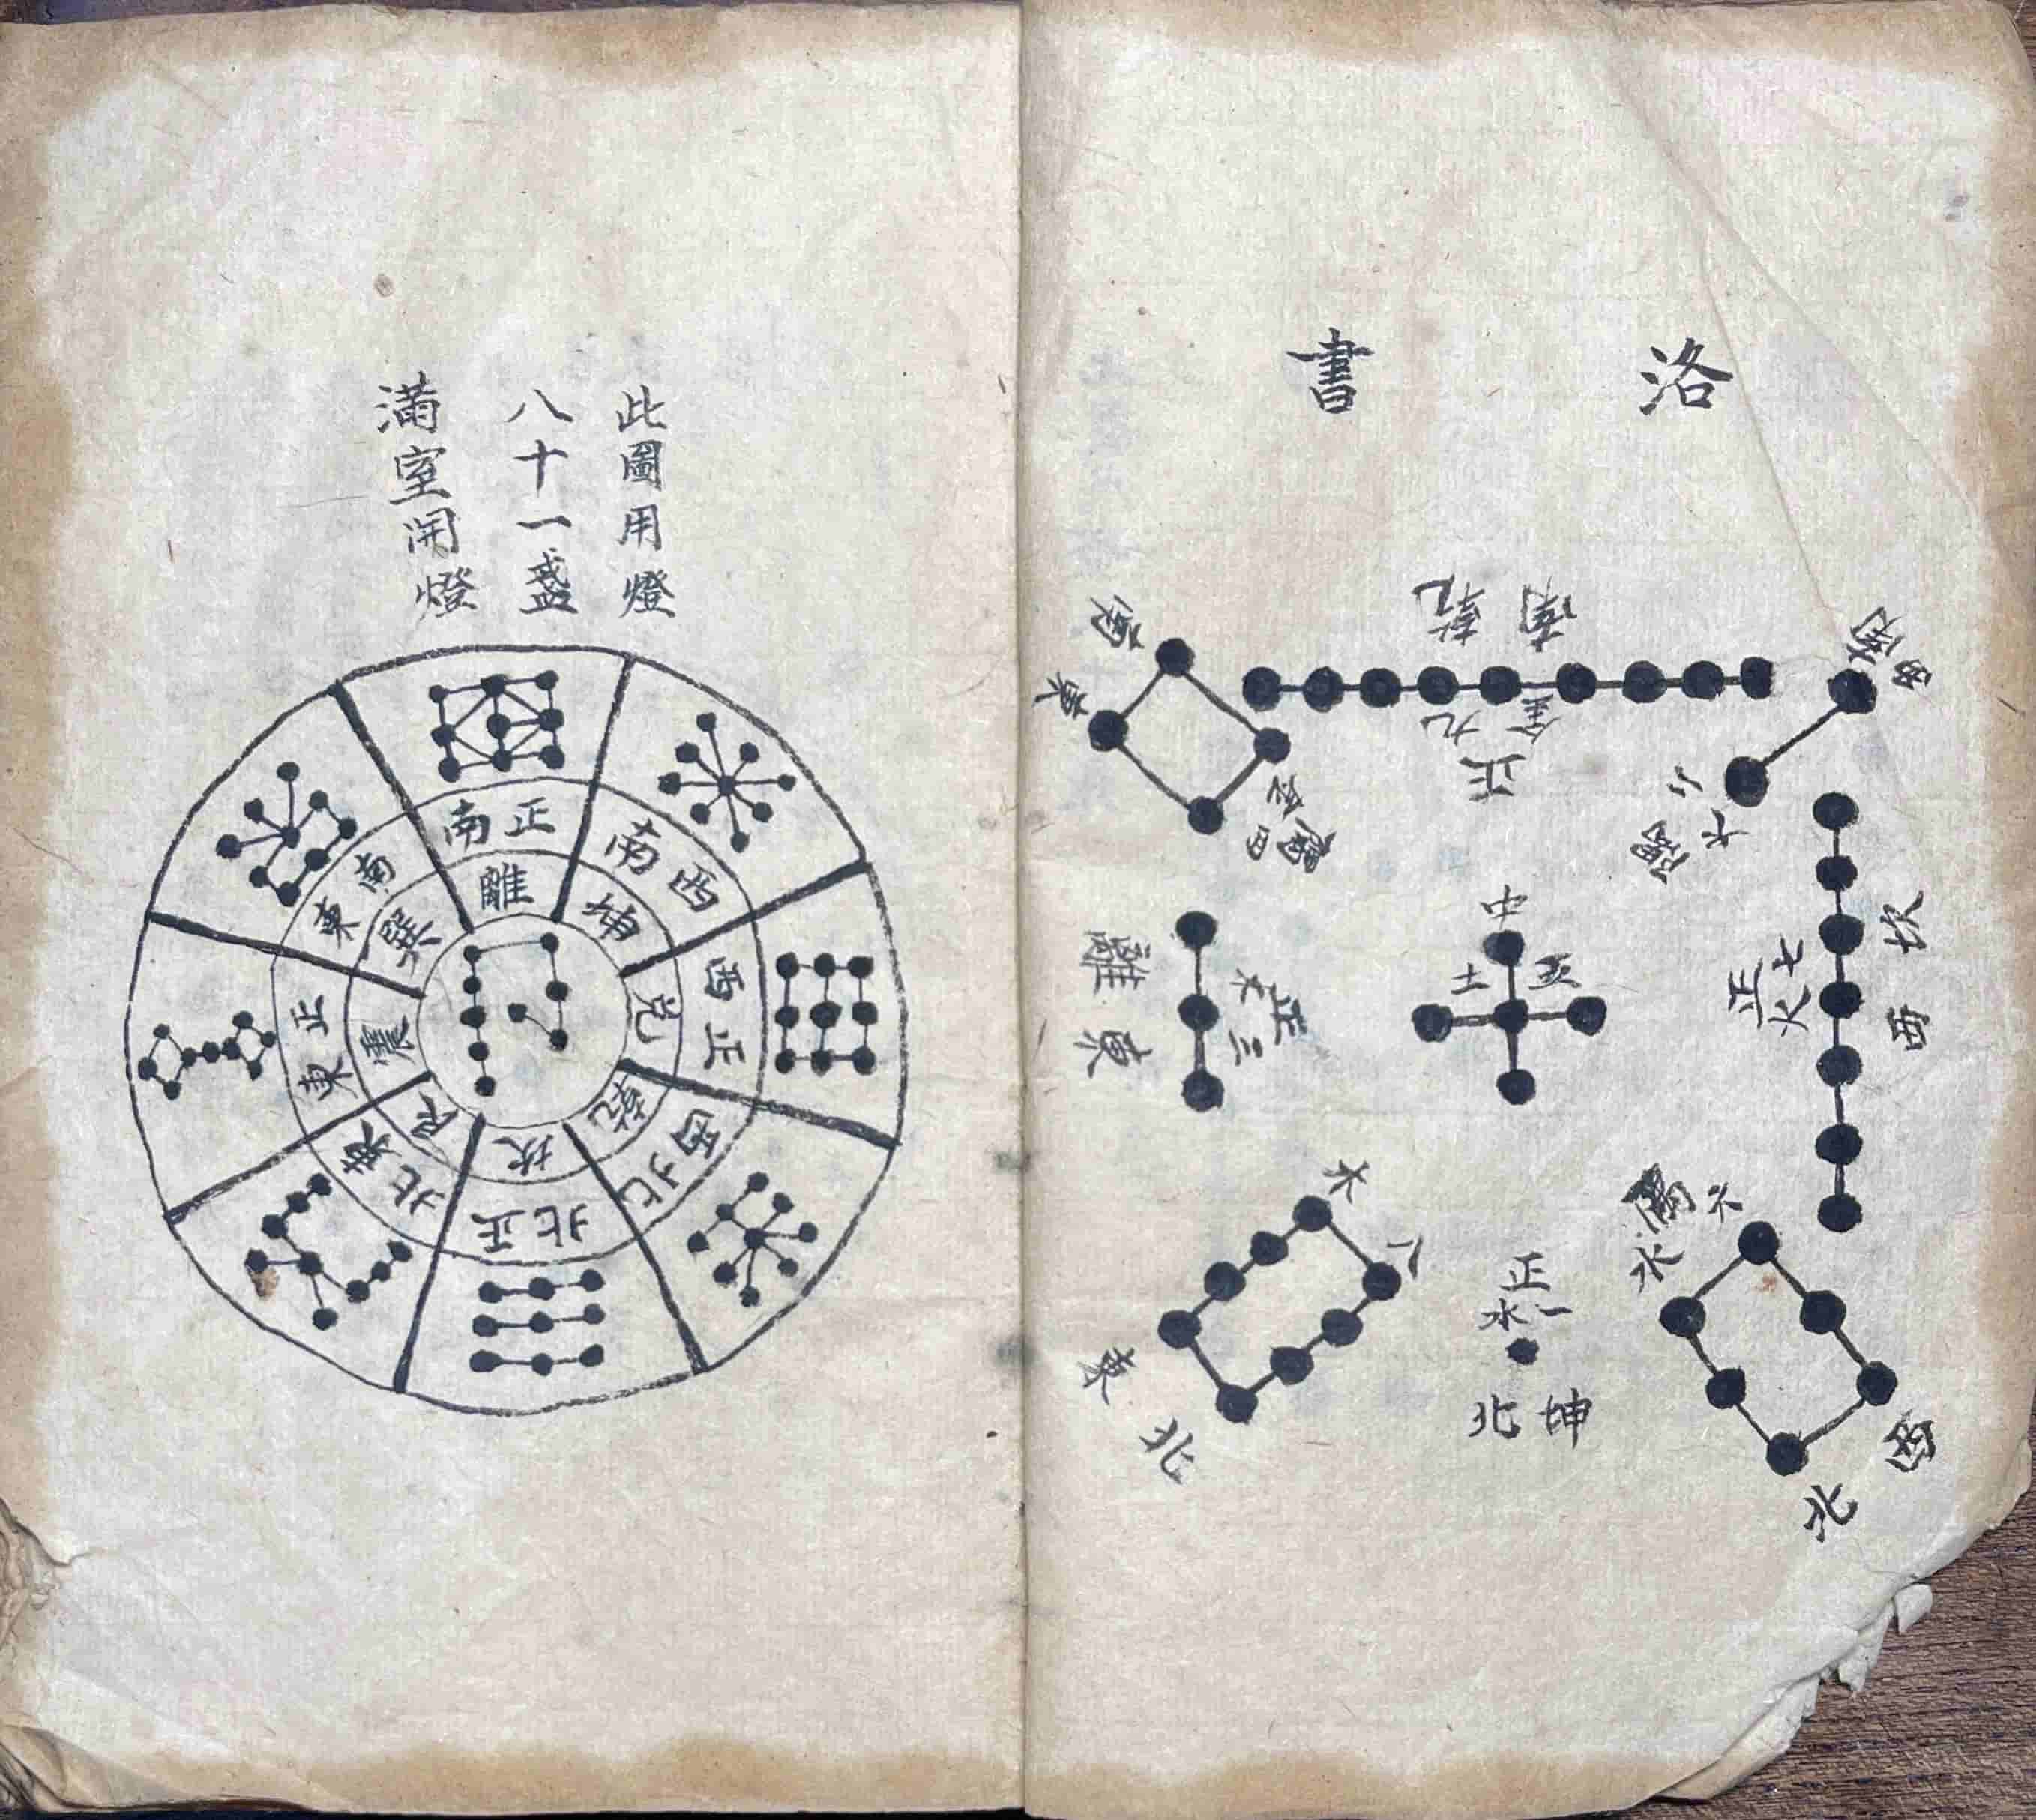 洛書
南乾
金九
正
西南
二火
隅
東南
金四隅
坎西
七火正
中
五土
離東
正三木
六隅水
西北
正
一水
坤北
八木
東北
此圖用燈
八十一盞
滿室開燈
正南
離
西南
坤
正西
兌
西北
乾
正北
坎
東北
艮
正東
震
東南
巽